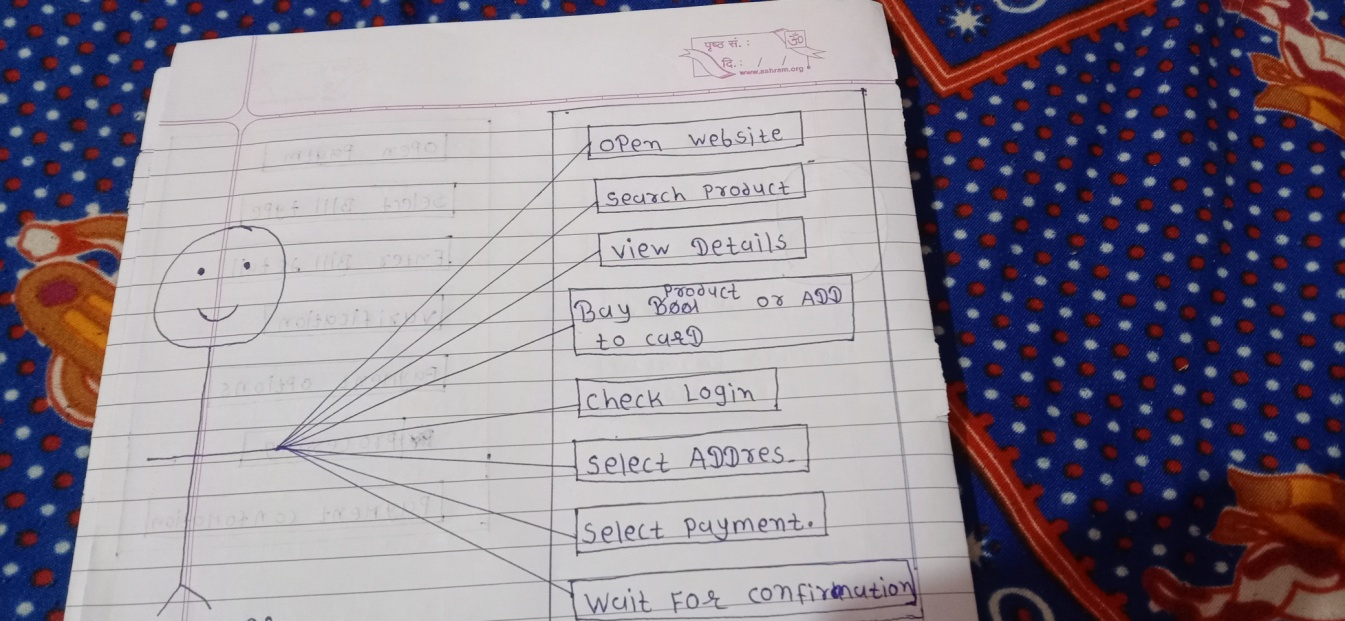 पृष्ठ सं. :
ॐ
दि. : / /
www.ashram.org
open website
Search Product
View Details
Product
Buy or ADD
to carD
Check Login
Select ADDres.
Select payment.
Wait For confirmation